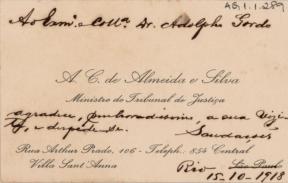 AG.1.1.289
Ao Exmo. e Coll.ª Dr. Adolpho Gordo
A. C. de Almeida e Silva
Ministro do Tribunal de Justiça
agradece, penhoradissimo, a sua
e despede-se. Saudações
Rua Arthur Prado, 106 - Teleph.: 854 Central
Villa Sant'Anna
Rio São Paulo
15-10-1918